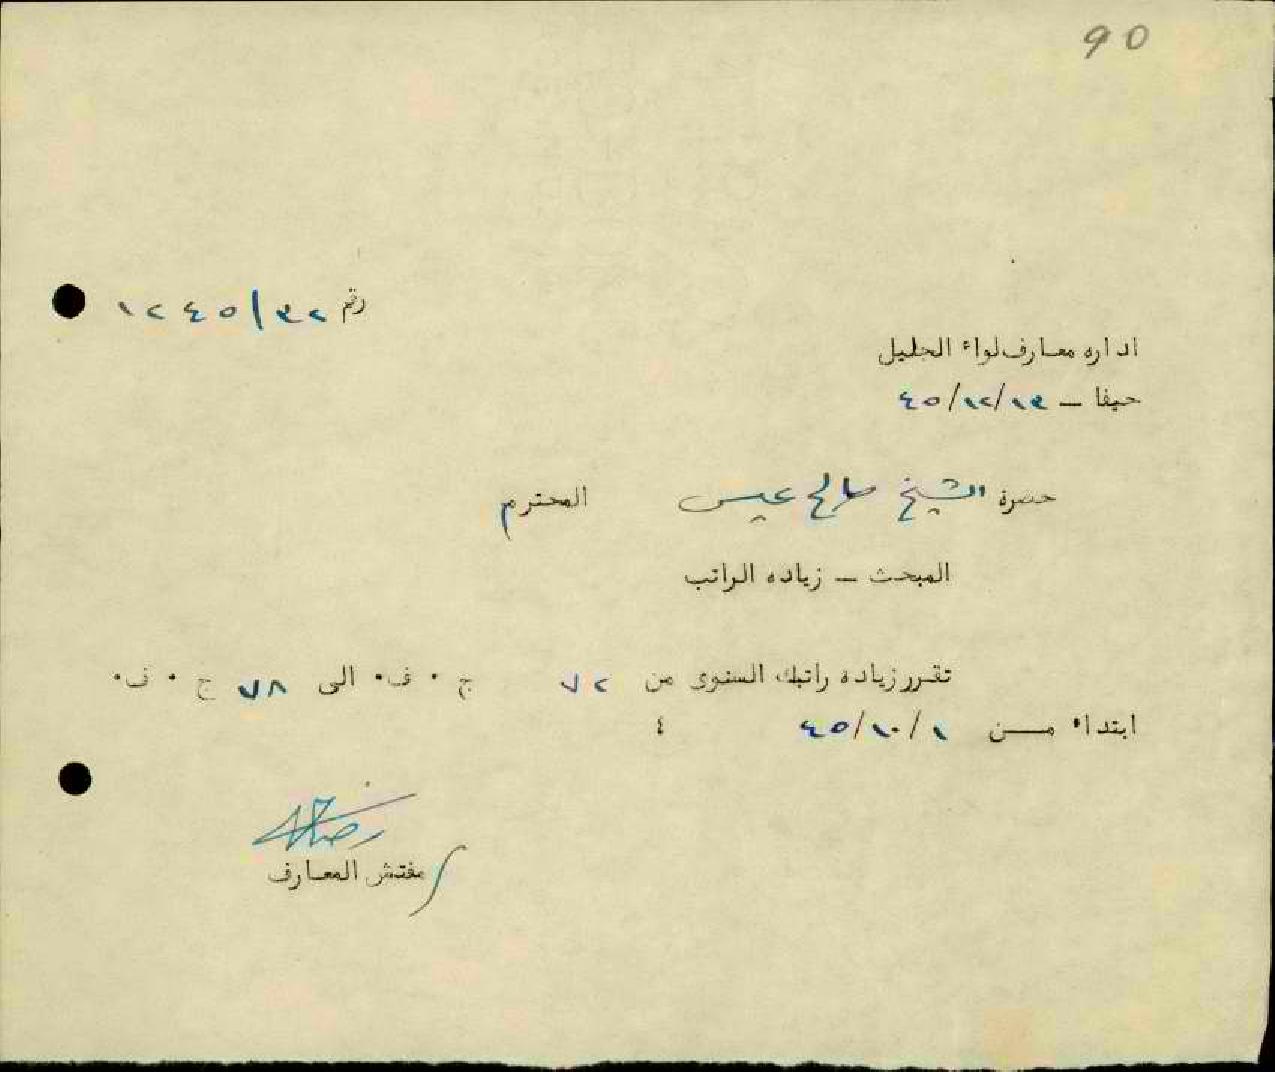 90
رقم ٣٢/١٢٤٥
اداره معارف لواء الجليل
حيفا - ٤٥/١٢/١٣
حضرة الشيخ صالح عيسى المحترم
المبحث - زياده الراتب
تقرر زياده راتبك السنوى من ٧٢ ج ٠ ف٠ الى ٧٨ ج ٠ ف٠
ابتداء من ٤٥/١٠/١ ٤
مفتش المعارف